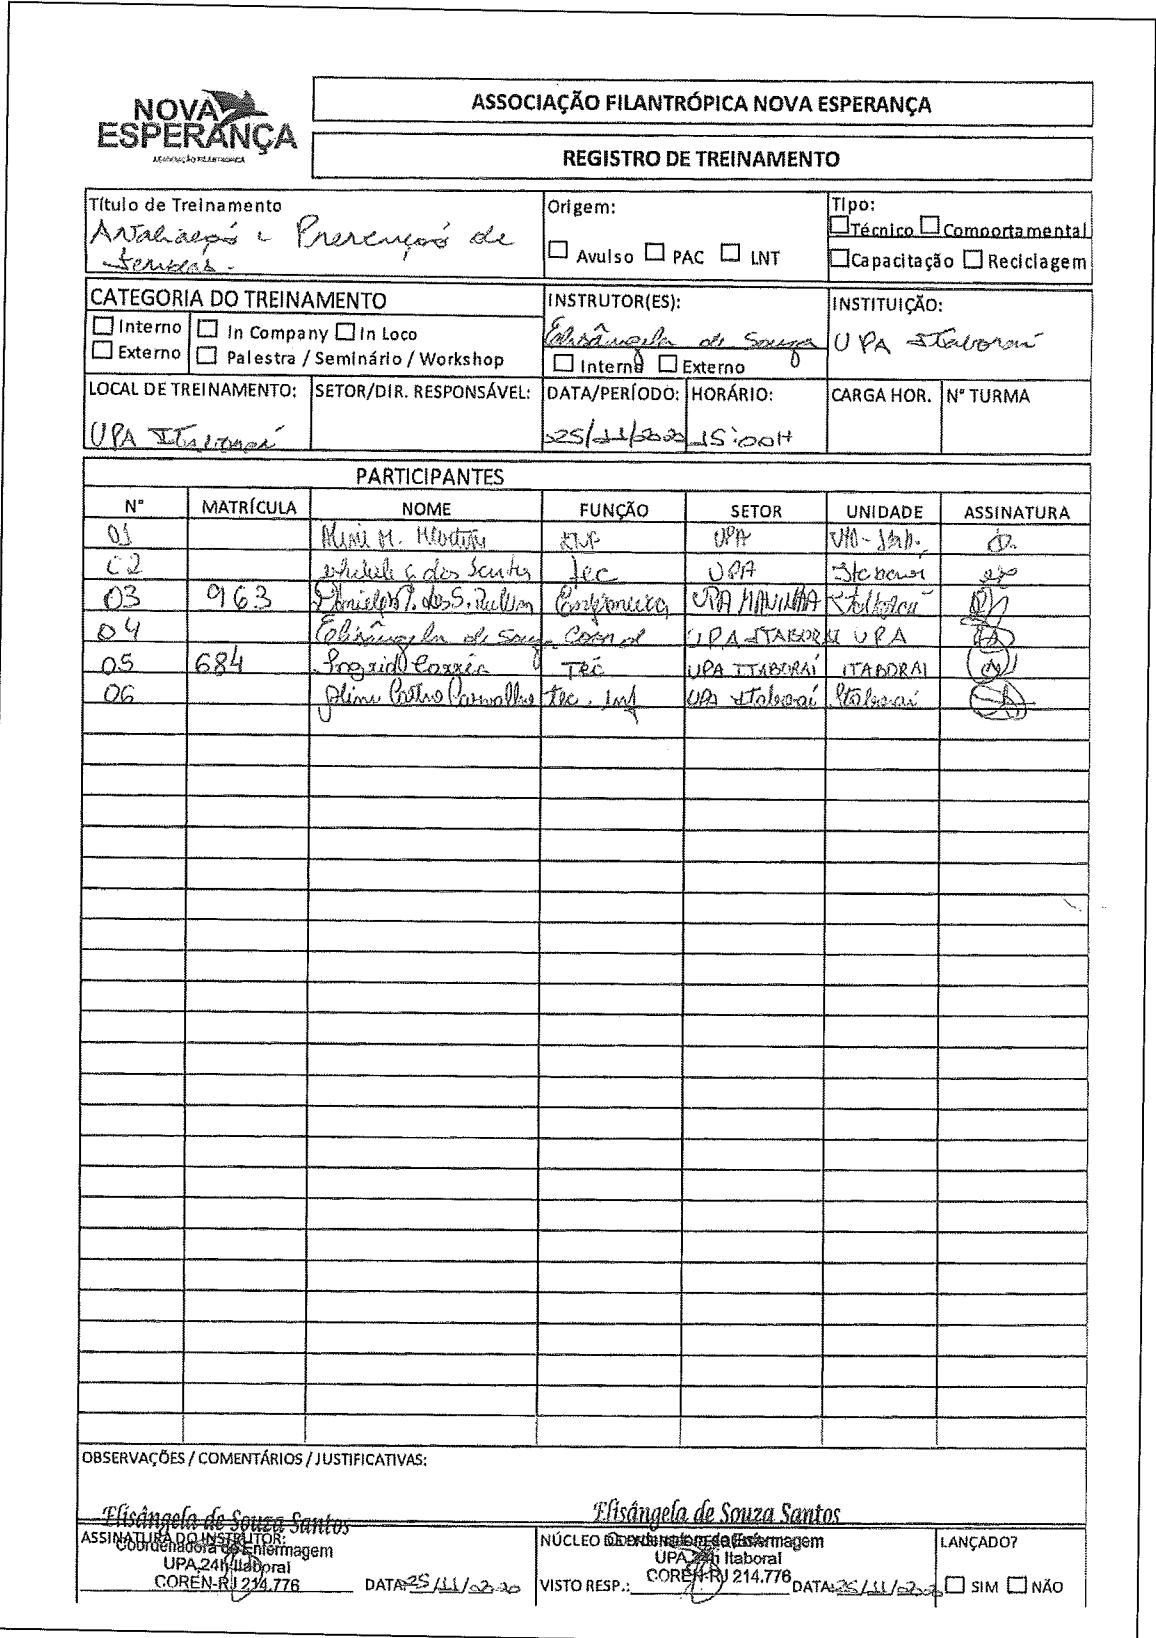 NOVA
ESPERANÇA
ASSOCIAÇÃO FILANTRÓPICA
ASSOCIAÇÃO FILANTRÓPICA NOVA ESPERANÇA
REGISTRO DE TREINAMENTO
Título de Treinamento
Avaliação e Prevenção de
feridas.
Origem:
☐ Avulso ☐ PAC ☐ LNT
Tipo:
☐ Técnico ☐ Comportamental
☐ Capacitação ☐ Reciclagem
CATEGORIA DO TREINAMENTO
☐ Interno ☐ In Company ☐ In Loco
☐ Externo ☐ Palestra / Seminário / Workshop
INSTRUTOR(ES):
Elisângela de Souza
☐ Interno ☐ Externo
INSTITUIÇÃO:
UPA Itaboraí
LOCAL DE TREINAMENTO:
UPA Itaboraí
SETOR/DIR. RESPONSÁVEL:
DATA/PERÍODO:
25/11/2020
HORÁRIO:
15:00H
CARGA HOR.
N° TURMA
PARTICIPANTES
N° MATRÍCULA NOME FUNÇÃO SETOR UNIDADE ASSINATURA
01 M. Martins Enf UPA
02 dos Santos Tec UPA Itaboraí
03 963 dos S. Enfermeira UPA
04 Elisângela de Souza Coord UPA ITABORAI UPA
05 684 Ingrid Corrêa TÉC UPA ITABORAÍ ITABORAI
06 Aline Castro Carvalho Tec. Enf UPA Itaboraí Itaboraí
OBSERVAÇÕES / COMENTÁRIOS / JUSTIFICATIVAS:
Elisângela de Souza Santos
ASSINATURA DO INSTRUTOR:
Coordenadora de Enfermagem
UPA 24h Itaboraí
COREN-RJ 214.776
DATA: 25/11/2020
Elisângela de Souza Santos
NÚCLEO DE
Coordenadora de Enfermagem
UPA 24h Itaboraí
COREN-RJ 214.776
VISTO RESP.:
DATA: 25/11/2020
LANÇADO?
☐ SIM ☐ NÃO